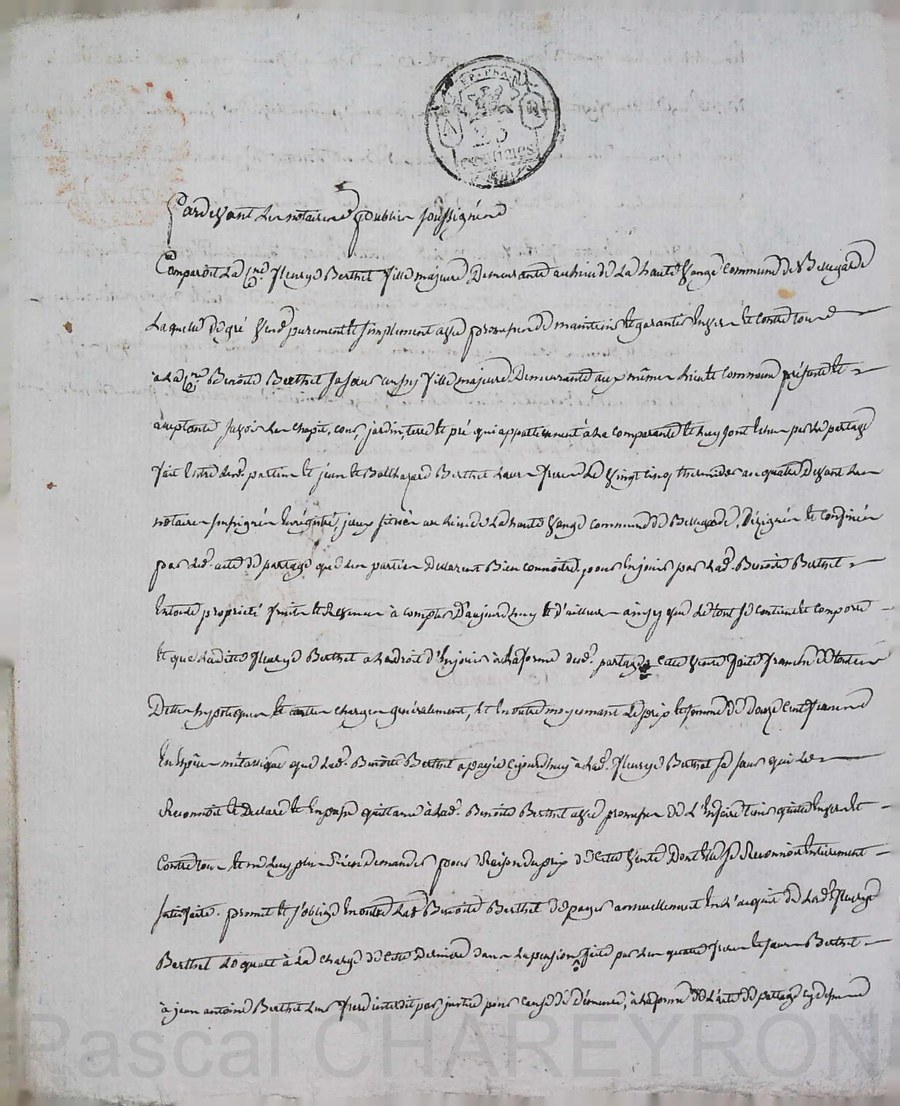 REP. FRA.
25
centimes
Pardevant les notaires publics soussignés
Comparoit la Cne. fleurye Berthet fille majeure demeurante au lieu de la haute vange commune de Bellegarde
laquelle de gré vend purement et simplement avec promesse de maintenir et garantir envers et contre tous
à la Cne. Benoite Berthet sa sœur aussy fille majeure demeurante aux mêmes lieu et commune présente et
acceptante savoir les chapit, cour, jardin, terre et pré qui appartiennent à la comparante et luy sont échus par le partage
fait entre les parties et jean et Balthazard Berthet leurs freres le vingt cinq thermidor an quatre devant les
notaires soussignés enregistré, iceux situés au lieu de la haute vange commune de Bellegarde, désignés et confinés
par led. acte de partage que les parties declarent bien connoitre, pour en jouir par lad. Benoite Berthet
en toute propriété fruits et revenus à compter d'aujourd'huy et d'ailleurs ainsy que le tout se contient et comporte
et que ladite fleurye Berthet a le droit d'en jouir à la forme dud. partage cette vente faite franche de toutes
dettes hypoteques et autres charges generalement, et en outre moyennant le prix et somme de douze cent francs
en espèces métallique que lad. Benoite Berthet a payé cejourd'huy à lad. fleurye Berthet sa sœur qui le
reconnoit et declare et en passe quittance à lad. Benoite Berthet avec promesse de l'en faire tenir quitte envers et
contre tous et ne luy plus rien demander pour raison du prix de cette vente dont elle se reconnoit entierement
satisfaite. promet et s'oblige en outre lad. Benoite Berthet de payer annuellement en l'acquit de lad. fleurye
Berthet le quart à la charge de cette derniere dans la pension faite par les quatre freres et sœurs Berthet
à jean antoine Berthet leur frere interdit par justice pour cause de démence, à la forme de l'acte de partage cy dessus
Pascal CHAREYRON